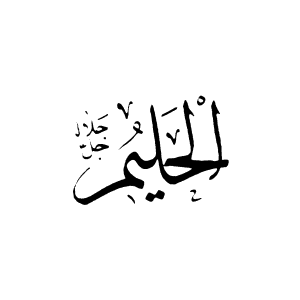 الْحَلِيمُ
جل جلاله